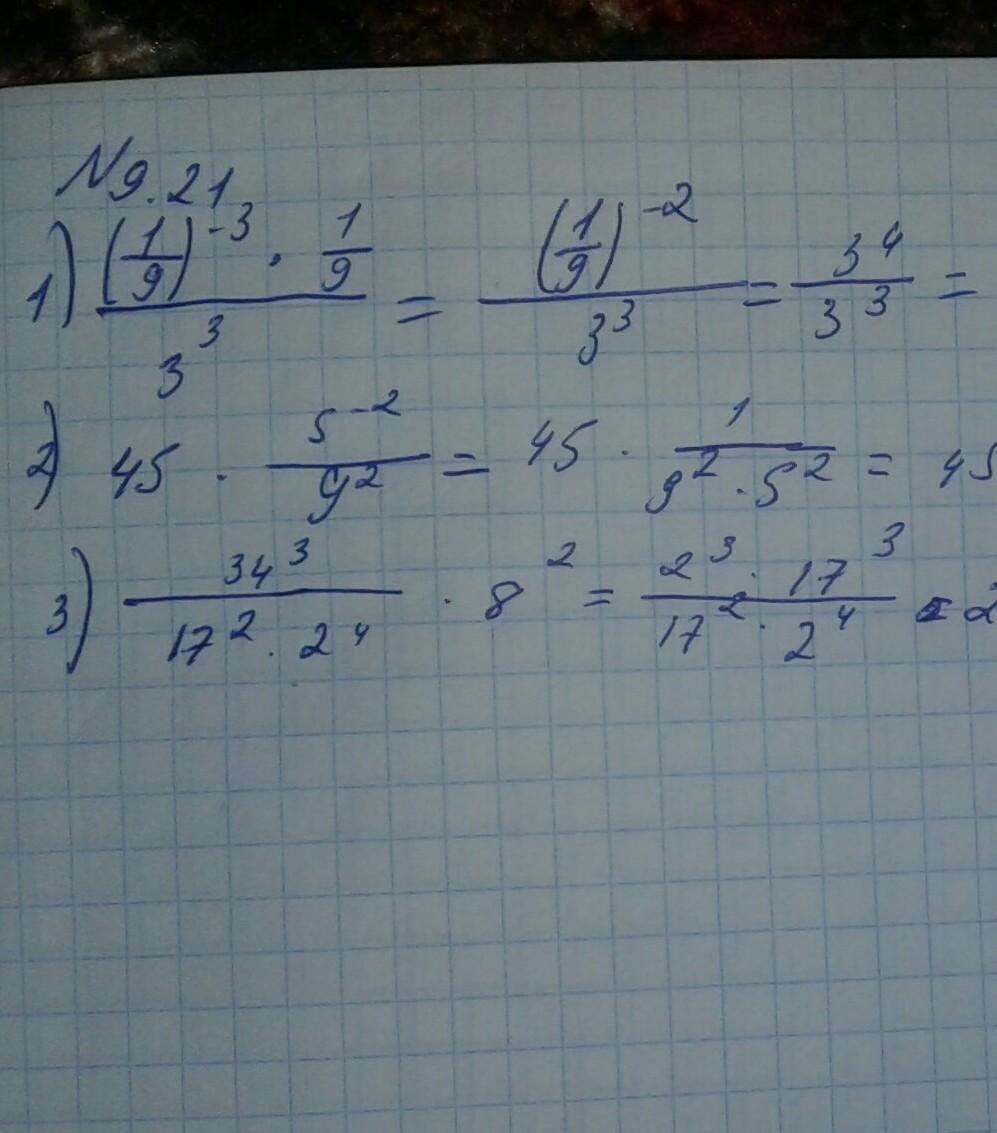 №9.21
1) ((1/9)^-3 · 1/9) / 3^3 = (1/9)^-2 / 3^3 = 3^4 / 3^3 =
2) 45 · 5^-2 / 9^2 = 45 · 1 / (9^2 · 5^2) = 45
3) 34^3 / (17^2 · 2^4) · 8^2 = (2^3 · 17^3) / (17^2 · 2^4) = 2